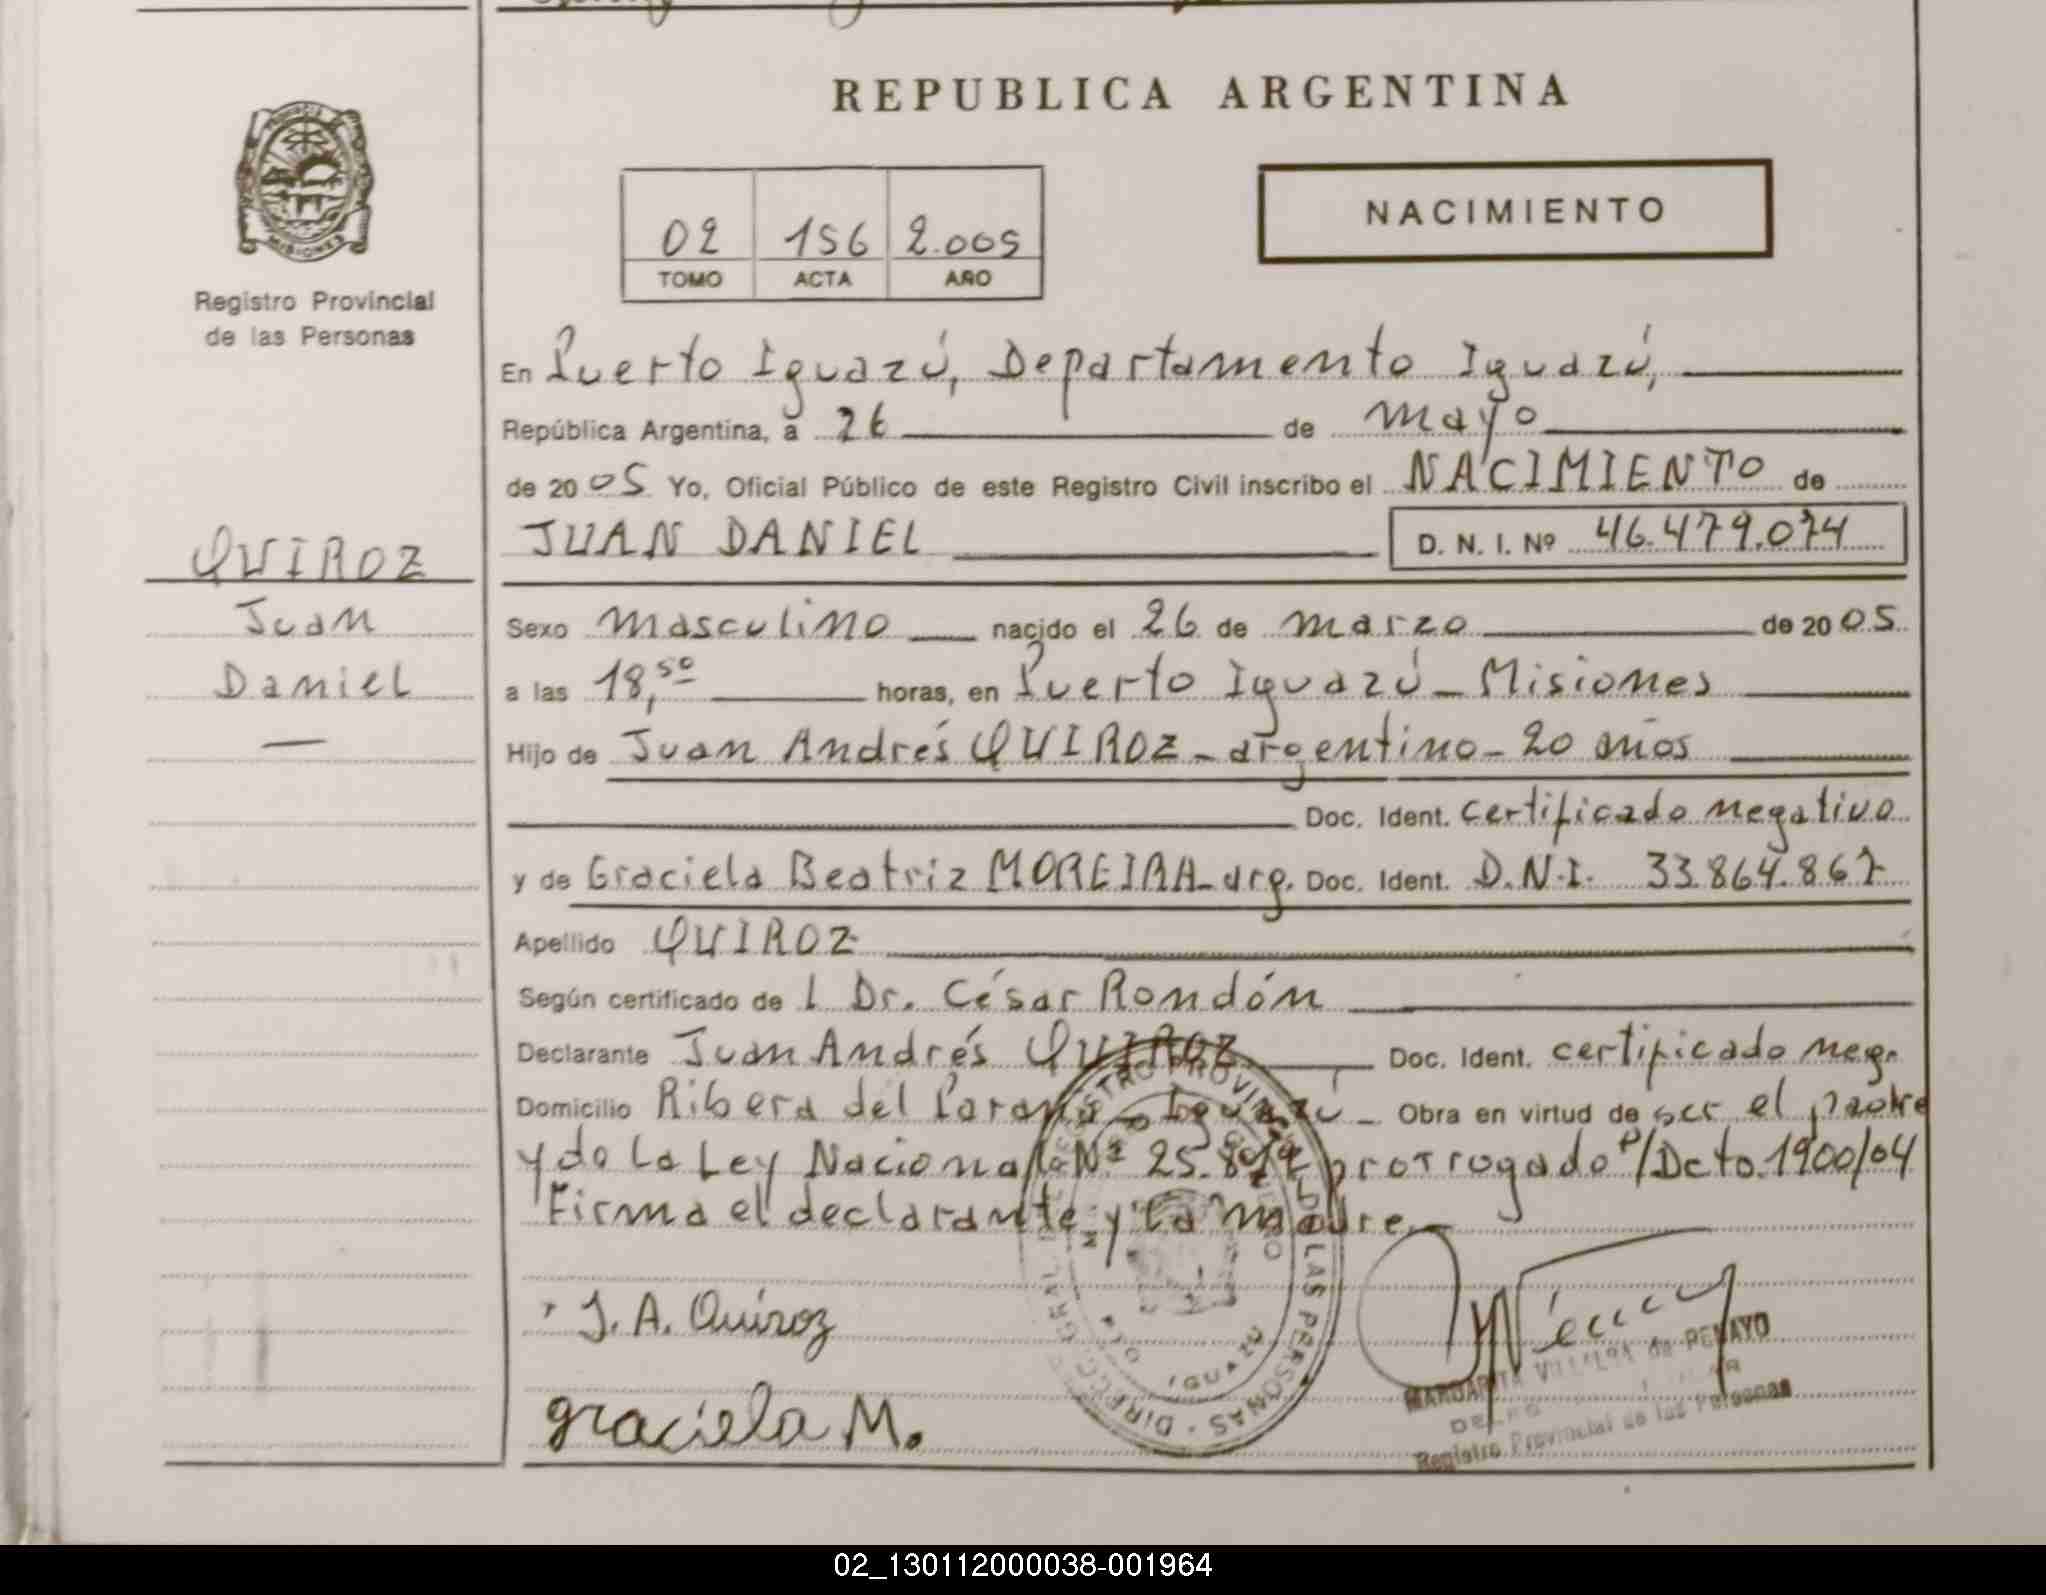 REPUBLICA ARGENTINA
PROVINCIA DE MISIONES
Registro Provincial
de las Personas
02 156 2.005
TOMO ACTA AÑO
NACIMIENTO
En Puerto Iguazú, Departamento Iguazú,
República Argentina, a 26 de mayo
de 2005 Yo, Oficial Público de este Registro Civil inscribo el NACIMIENTO de
JUAN DANIEL D. N. I. Nº 46.479.074
QUIROZ
Juan
Daniel
Sexo masculino nacido el 26 de marzo de 2005
a las 18,50 horas, en Puerto Iguazú - Misiones
Hijo de Juan Andrés QUIROZ - argentino - 20 años
Doc. Ident. certificado negativo
y de Graciela Beatriz MOREIRA - arg. Doc. Ident. D.N.I. 33.864.867
Apellido QUIROZ
Según certificado de l Dr. César Rondón
Declarante Juan Andrés QUIROZ Doc. Ident. certificado neg.
Domicilio Ribera del Paraná - Iguazú - Obra en virtud de ser el padre
y de la Ley Nacional Nº prorrogado p/Dcto. 1900/04
Firma el declarante y la madre.
J. A. Quiroz
graciela M.
REGISTRO PROVINCIAL DE LAS PERSONAS · DIRECC. GRAL.
IGUAZÚ
MARGARITA VILLALBA de PENAYO
Registro Provincial de las Personas
02_130112000038-001964